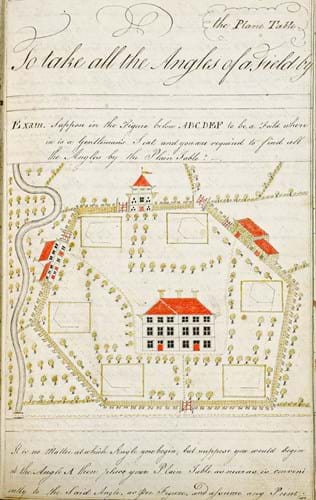 the Plane Table
To take all the Angles of a Field by
Exam. Suppose in the Figure below ABCDEF to be a Field where
in is a Gentleman's Seat and you are required to find all
the Angles by the Plain Table?
It is no Matter at which Angle you begin, but suppose you would begin
at the Angle A then place your Plain Table as near as is conveni
ently to the Said Angle, as per Figure, and assume any Point